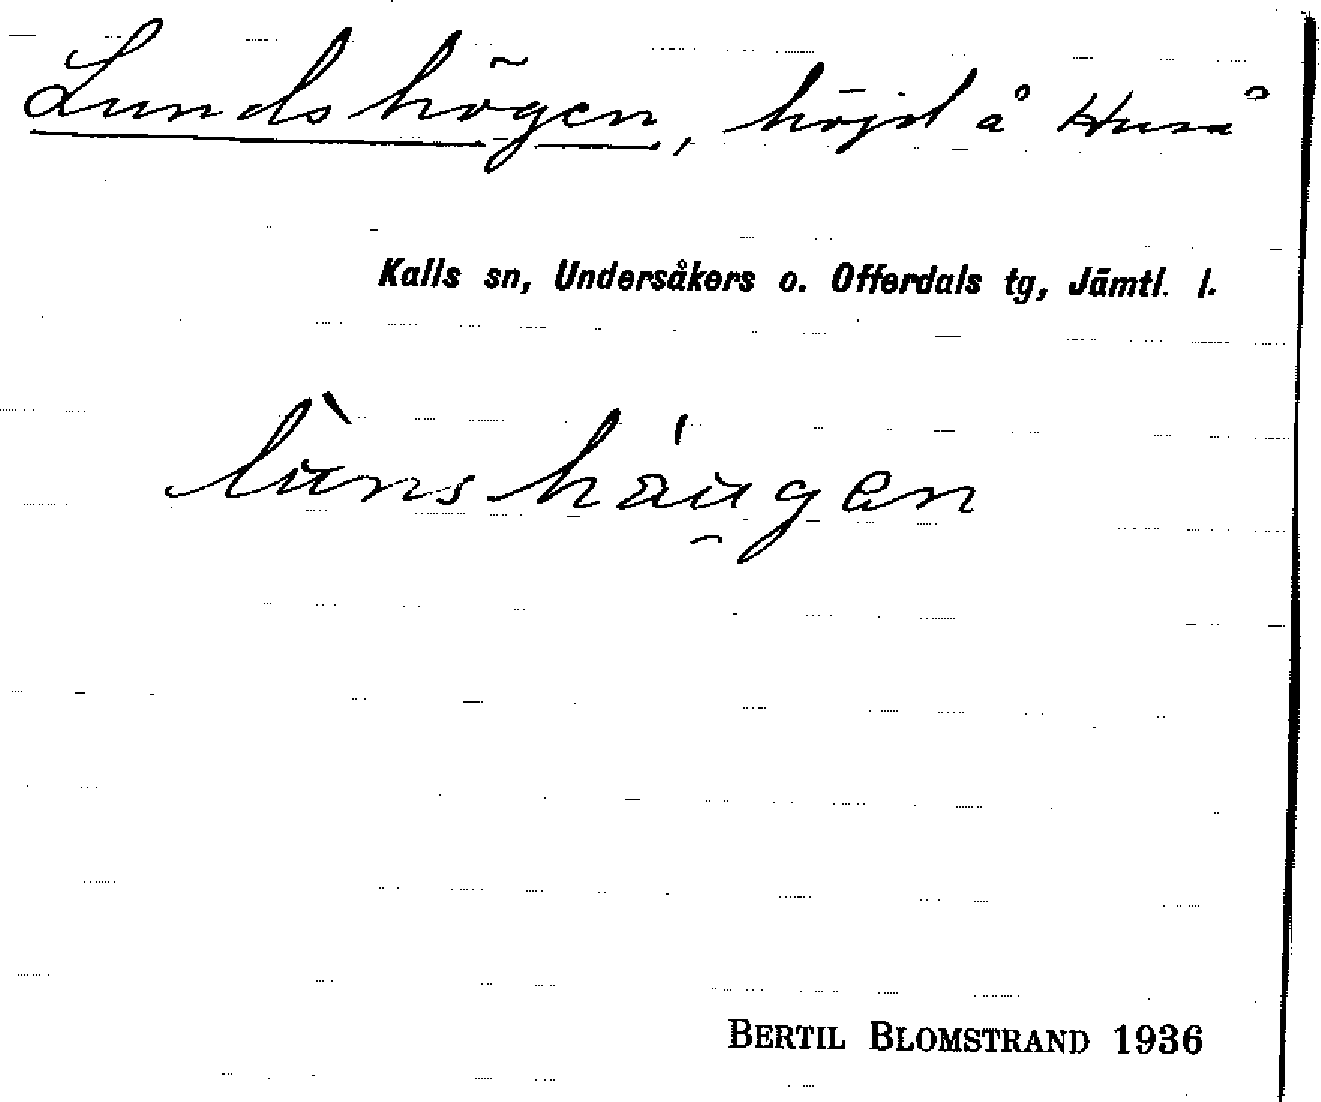 Lundshögen, höjd å Huså
Kalls sn, Undersåkers o. Offerdals tg, Jämtl. l.
lùnsháu̯gen
BERTIL BLOMSTRAND 1936